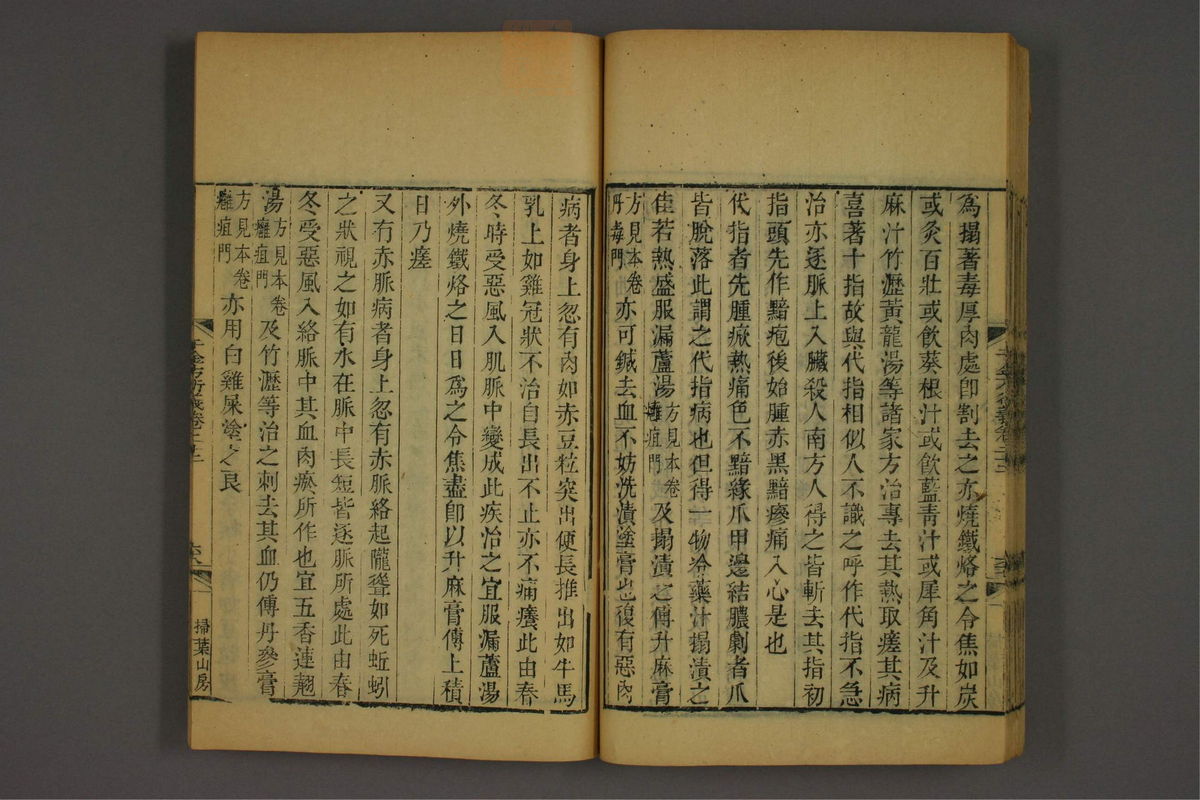 為搨著毒厚肉處卽割去之亦燒鐵烙之令焦如炭
或灸百壯或飲葵根汁或飲藍青汁或犀角汁及升
麻汁竹瀝黃龍湯等諸家方治專去其熱取瘥其病
喜著十指故與代指相似人不識之呼作代指不急
治亦逐脈上入臟殺人南方人得之皆斬去其指初
指頭先作黯疱後始腫赤黑黯瘮痛入心是也
代指者先腫焮熱痛色不黯緣爪甲邊結膿劇者爪
皆脫落此謂之代指病也但得一物冷藥汁搨漬之
佳若熱盛服漏蘆湯方見本卷癰疽門及搨漬之傅升麻膏
方見本卷丹毒門亦可鍼去血不妨洗漬塗膏也復有惡肉
病者身上忽有肉如赤豆粒突出便長推出如牛馬
乳上如雞冠狀不治自長出不止亦不痛癢此由春
冬時受惡風入肌脈中變成此疾治之宜服漏蘆湯
外燒鐵烙之日日為之令焦盡卽以升麻膏傅上積
日乃瘥
又有赤脈病者身上忽有赤脈絡起隴聳如死蚯蚓
之狀視之如有水在脈中長短皆逐脈所處此由春
冬受惡風入絡脈中其血肉瘀所作也宜五香連翹
湯方見本卷癰疽門及竹瀝等治之刺去其血仍傅丹參膏
方見本卷癰疽門亦用白雞屎塗之良
掃葉山房